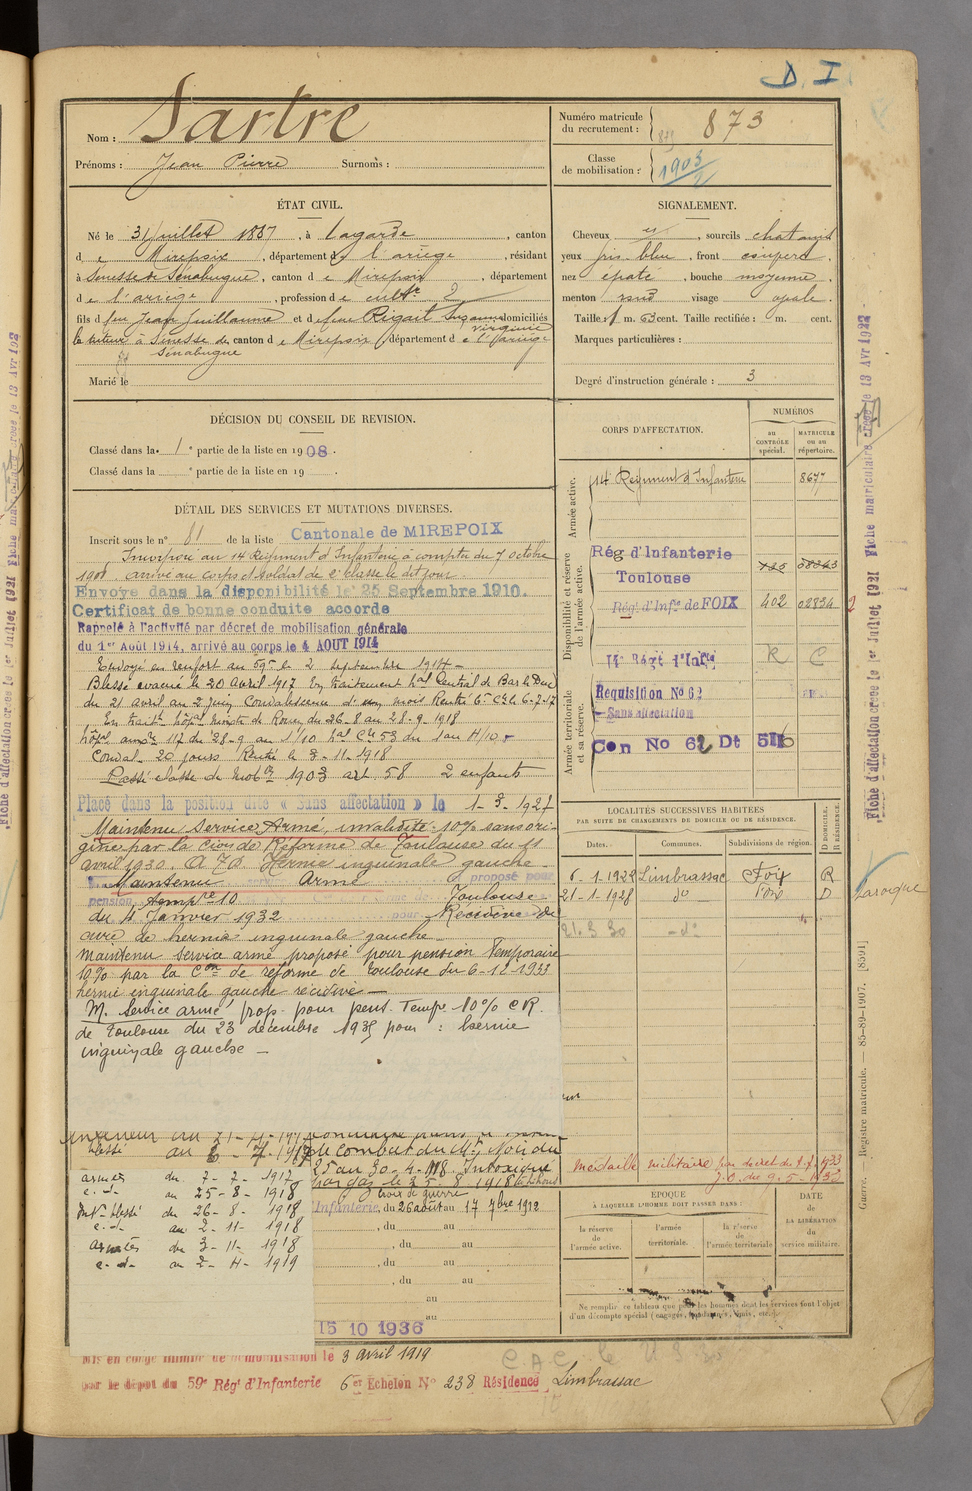 D. I.
Nom : Sartre
Prénoms : Jean Pierre Surnoms :
Numéro matricule du recrutement : 873
Classe de mobilisation : 1903/2
ÉTAT CIVIL.
Né le 31 Juillet 1887, à Lagarde, canton
de Mirepoix, département de l'ariège, résidant
à Senesse de Senabugue, canton de Mirepoix, département
de l'ariège, profession de cultr
fils de feu Jean Guillaume et de feue Rigail Suzanne Virginie domiciliés
à Senesse de Senabugue, canton de Mirepoix, département de l'ariège
Marié le
SIGNALEMENT.
Cheveux , sourcils chatains
yeux gris bleu, front
nez épaté, bouche moyenne,
menton rond visage ovale.
Taille : 1 m. 63 cent. Taille rectifiée : m. cent.
Marques particulières :
Degré d'instruction générale : 3
DÉCISION DU CONSEIL DE REVISION.
Classé dans la 1e partie de la liste en 1908.
Classé dans la e partie de la liste en 19 .
DÉTAIL DES SERVICES ET MUTATIONS DIVERSES.
Inscrit sous le n° 61 de la liste Cantonale de MIREPOIX
Incorporé au 14 Régiment d'Infanterie à compter du 7 octobre
1908. arrivé au corps et soldat de 2e classe le dit jour.
Envoyé dans la disponibilité le 25 Septembre 1910.
Certificat de bonne conduite accordé
Rappelé à l'activité par décret de mobilisation générale
du 1er Août 1914, arrivé au corps le 4 AOUT 1914
Envoyé en renfort au 59e le 2 septembre 1914
Blessé évacué le 20 avril 1917 En traitement hal Central de Bar le Duc
du 21 avril au 2 juin Convalescence d'un mois Rentré 6e Cie le 6-7-17
En traitt hôpal mixte de Rouen du 26-8 au 28-9 1918
hôpal auxre 117 du 28-9 au 1/10
Conval. 20 jours Rentré le 3-11-1918
Passé classe de mobon 1903 art. 58 2 enfants
Placé dans la position dite « Sans affectation » le 1-3-1927
Maintenu Service Armé, invalidité -10% sans ori-
gine par la Cion de Réforme de Toulouse du 11
avril 1930. Hernie inguinale gauche.
Maintenu Armé proposé pour
pension temp. 10 Toulouse
du 4 Janvier 1932 pour Récidive de
cure de hernie inguinale gauche
Maintenu Service armé proposé pour pension temporaire
10% par la Con de réforme de Toulouse du 6-12-1932
hernie inguinale gauche récidivée
M. Service armé prop. pour pens. Tempe 10% C.R.
de Toulouse du 23 décembre 1935 pour : hernie
inguinale gauche
CORPS D'AFFECTATION.
NUMÉROS
au CONTRÔLE spécial.
MATRICULE ou au répertoire.
Armée active.
14e Régiment d'Infanterie 8677
Disponibilité et réserve de l'armée active.
Rég. d'Infanterie
Toulouse
Rég. d'Infie de FOIX 402 02834
14e Régt d'Infie
Armée territoriale et sa réserve.
Requisition No 62
Sans affectation
Con No 62 Dt
LOCALITÉS SUCCESSIVES HABITÉES
PAR SUITE DE CHANGEMENTS DE DOMICILE OU DE RÉSIDENCE.
Dates. Communes. Subdivisions de région. D DOMICILE. R RÉSIDENCE.
6-1-1922 Limbrassac Foix R
21-1-1928 do Foix D Laroque
21.3.30 do
Médaille militaire
EPOQUE
À LAQUELLE L'HOMME DOIT PASSER DANS :
la réserve de l'armée active.
l'armée territoriale.
la réserve de l'armée territoriale
DATE DE LA LIBÉRATION du service militaire.
Ne remplir ce tableau que pour les hommes dont les services font l'objet
d'un décompte spécial
blessé
le combat du Mt Noir du
25 au 30-4-18. Intoxiqué
croix de guerre
armées du 7-7-1917
au 25-8-1918
Int. blessé du 26-8-1918
au 2-11-1918
armées du 3-11-1918
au 2-4-1919
Infanterie, du 26 août au 17 7bre 1912
, du au
, du au
, du au
au
au
15 10 1936
Mis en congé illimité de démobilisation le 3 avril 1919
par le dépôt du 59e Régt d'Infanterie 6er Echelon No 238 Résidence Limbrassac
Fiche d'affectation créée le 1er Juillet 1921 Fiche matriculaire créée le 13 Avr 1922
Guerre. — Registre matricule. — 85-89-1907. [8591]